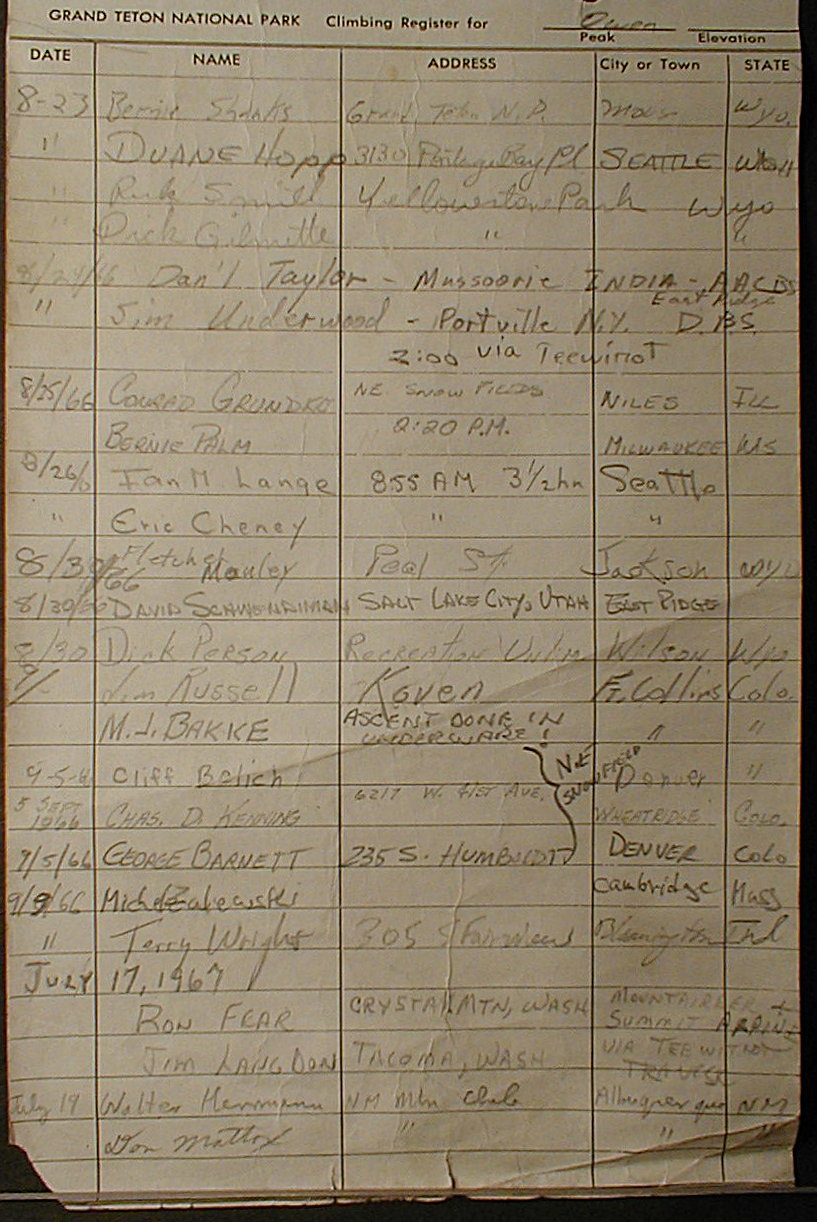 GRAND TETON NATIONAL PARK Climbing Register for Owen
Peak Elevation
DATE NAME ADDRESS City or Town STATE
8-23 Bernie Shanks Grand Teton N.P. Moose Wyo.
" DUANE HOPP 3130 Portage Bay Pl SEATTLE WASH
" Rick Yellowstone Park Wyo
" Dick " "
8/24/66 Dan'l Taylor - Mussoorie INDIA - AACDS
East Ridge
" Jim Underwood - Portville N.Y. D.B.S.
2:00 via Teewinot
8/25/66 CONRAD GRUNDKE NE SNOW FIELDS NILES ILL
BERNIE PALM 2:20 P.M. MILWAUKEE WIS
8/26/6 Ian M Lange 855 AM 3 1/2 hr Seattle
" Eric Cheney " "
8/30/66 Fletcher Manley Peal St. Jackson WYO
8/30/66 DAVID SALT LAKE CITY, UTAH EAST RIDGE
8/30 Dick PERSON RECREATION Unlim Wilson Wyo
9/ Jim Russell Koven Ft. Collins Colo.
M.J. BAKKE ASCENT DONE IN " "
UNDERWARE!
9-5-6 Cliff NE SNOWFIELD Denver "
5 SEPT 1966 CHAS. D. KENNING 6217 W. 41ST AVE. WHEATRIDGE COLO.
9/5/66 GEORGE BARNETT 235 S. HUMBOLDT DENVER COLO
9/9/66 Michel Zalewski Cambridge Mass
" Terry Wright 305 S Fairview Bloomington Ind
JULY 17, 1967
RON FEAR CRYSTAL MTN, WASH MOUNTAINEER +
SUMMIT ALPINE
JIM LANGDON TACOMA, WASH VIA TEEWINOT
TRAVERSE
July 19 Walter Herrmann NM Mtn Club Albuquerque NM
Don Mattox " " "